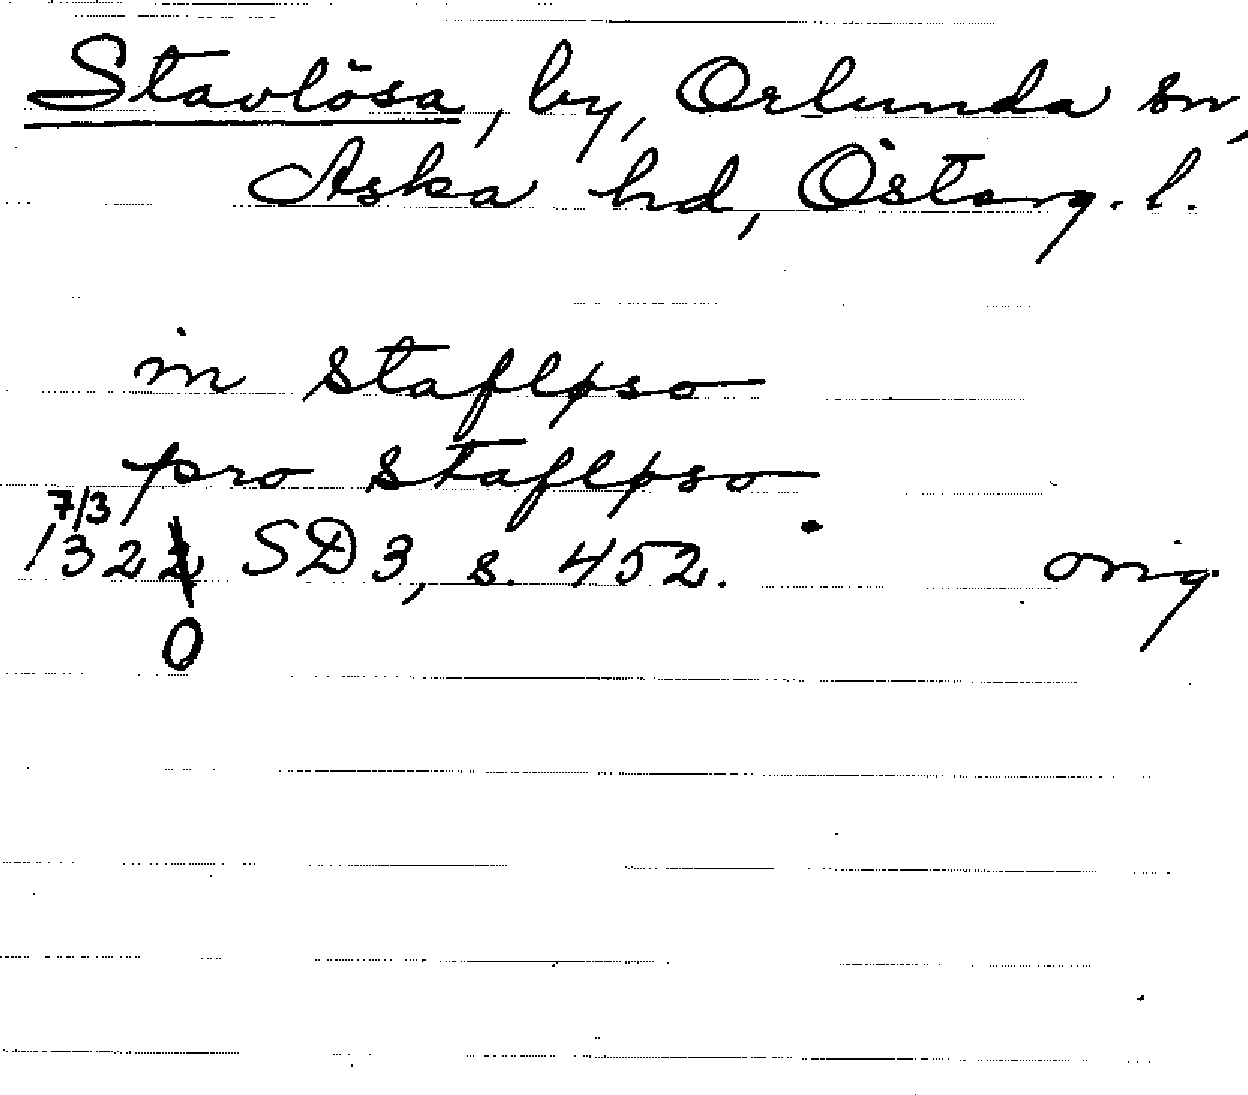 Stavlösa, by, Orlunda sn,
Aska hd, Österg. l.
in stafløso
pro stafløso
7/3
1322 SD 3, s. 452. orig.
0